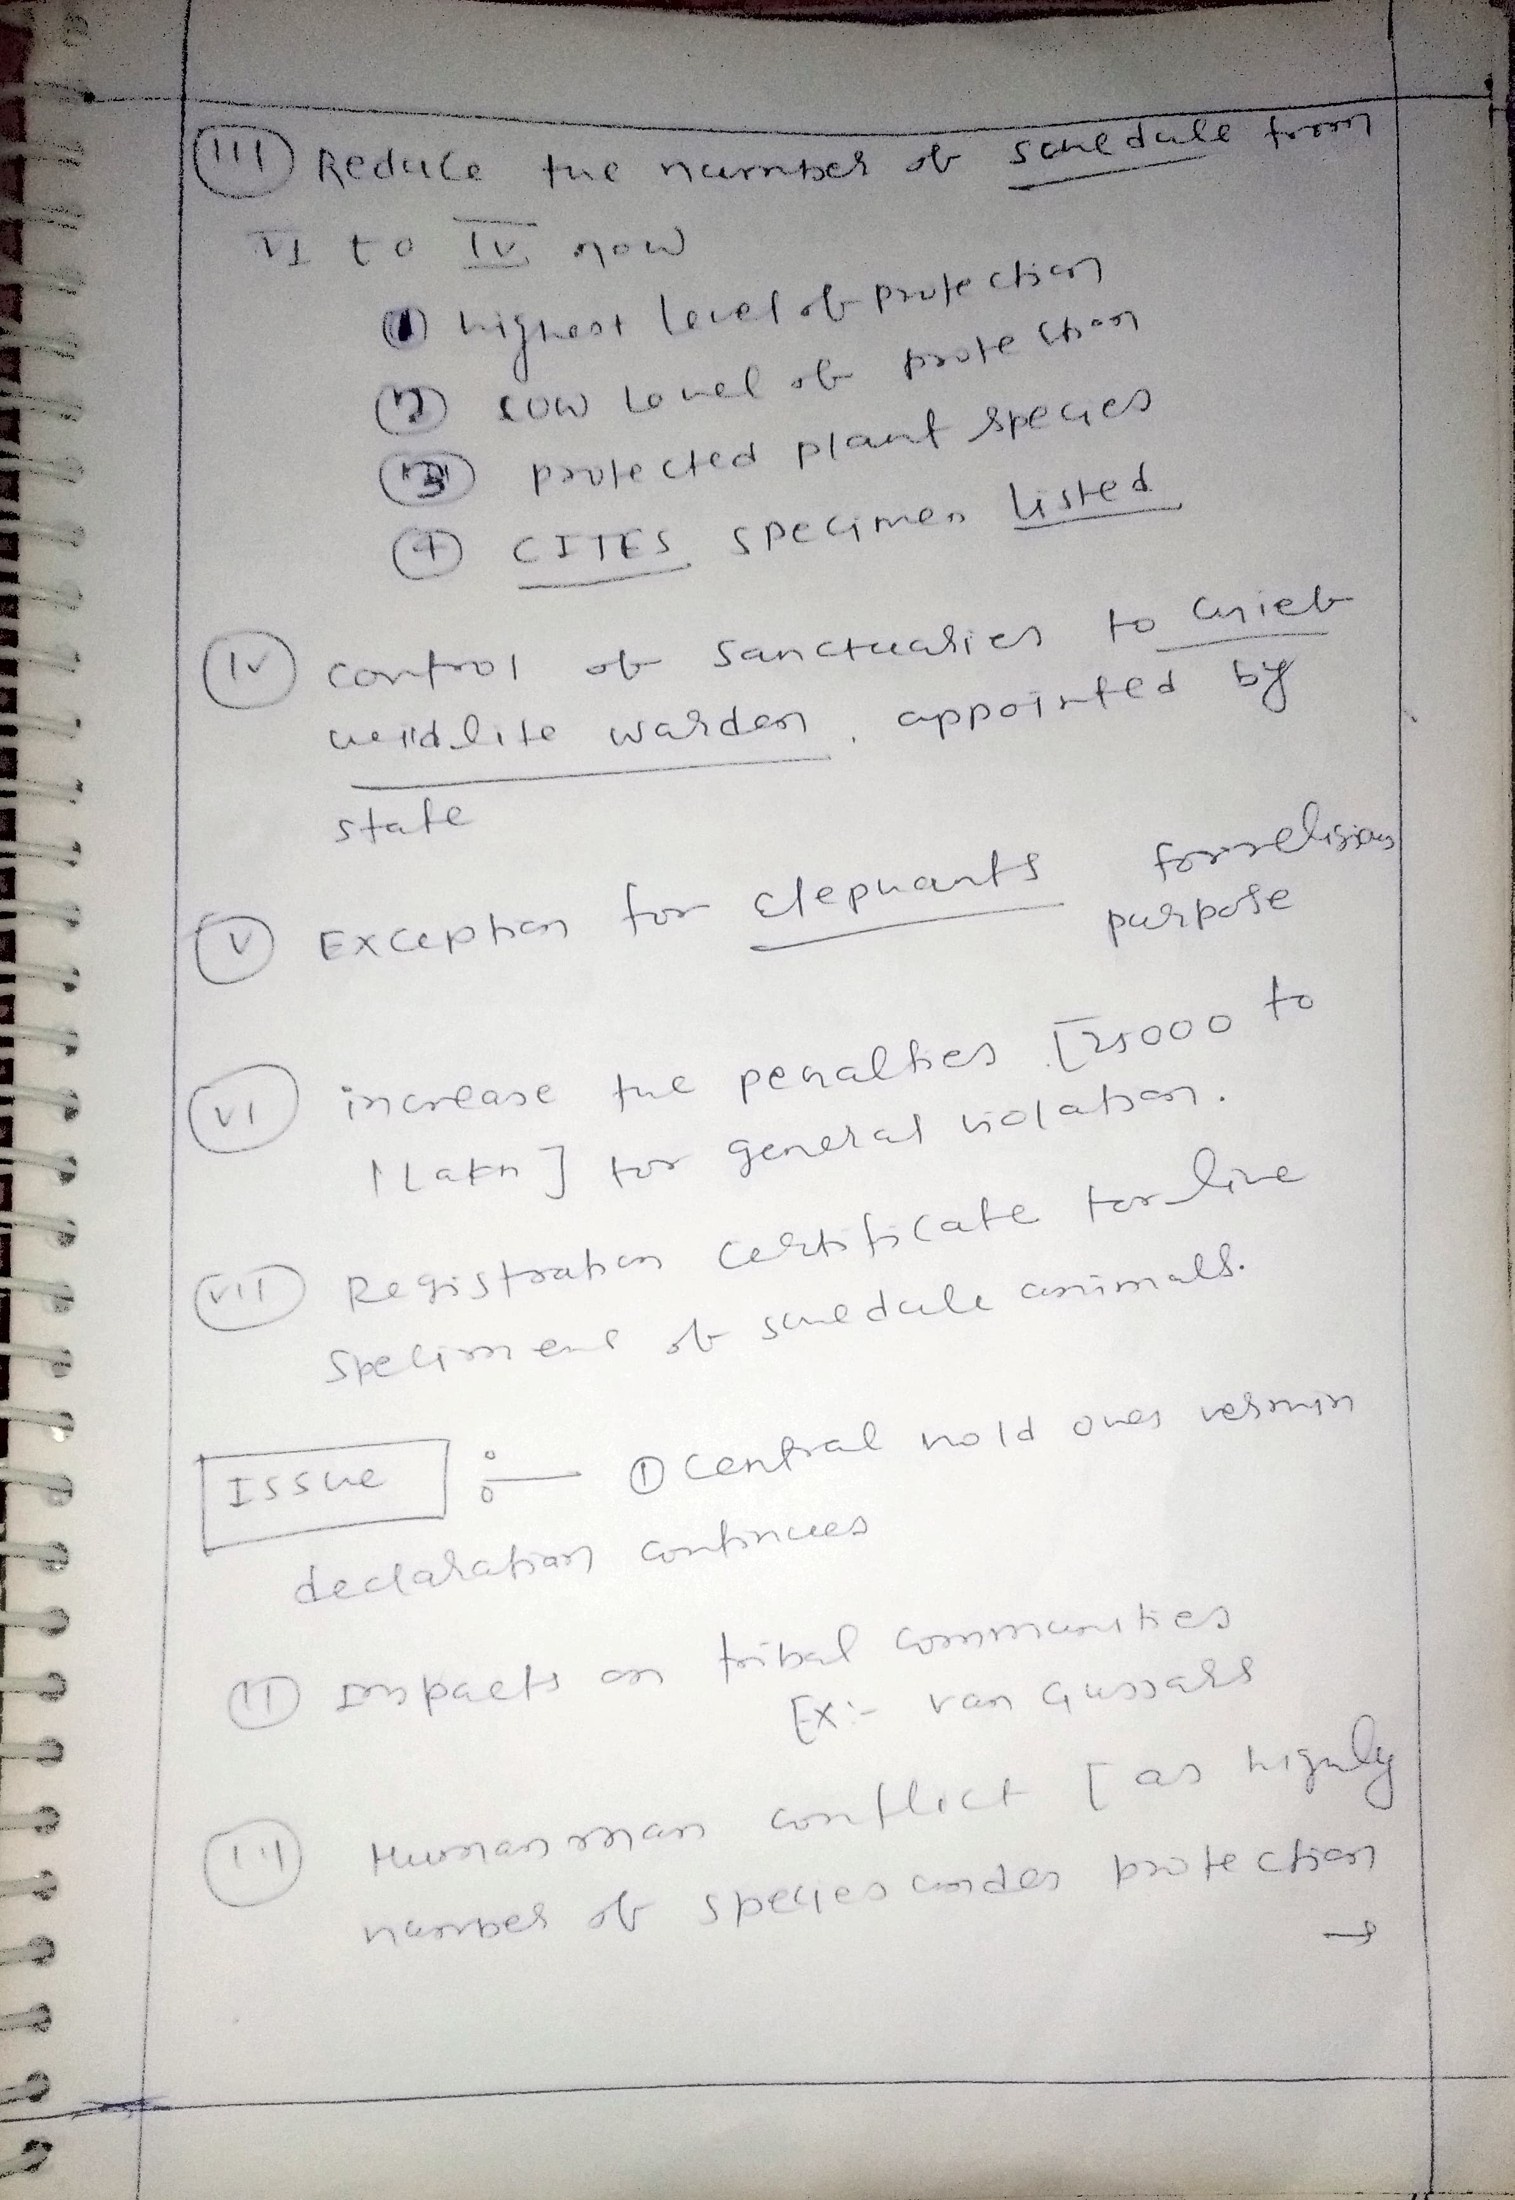 (III) Reduce the number of schedule from
VI to IV now
① highest level of protection
② low level of protection
③ protected plant species
④ CITES specimen listed
(IV) control of sanctuaries to chief
wildlife warden, appointed by
state
(V) Exception for elephants for religious
purpose
(VI) increase the penalties [25000 to
1 Lakh] for general violation.
(VII) Registration certificate for live
specimens of schedule animals.
Issue :— ① central hold over vermin
declaration continues
(II) Impacts on tribal communities
Ex:- van Gujjars
(III) Human man conflict [as highly
number of species under protection
→